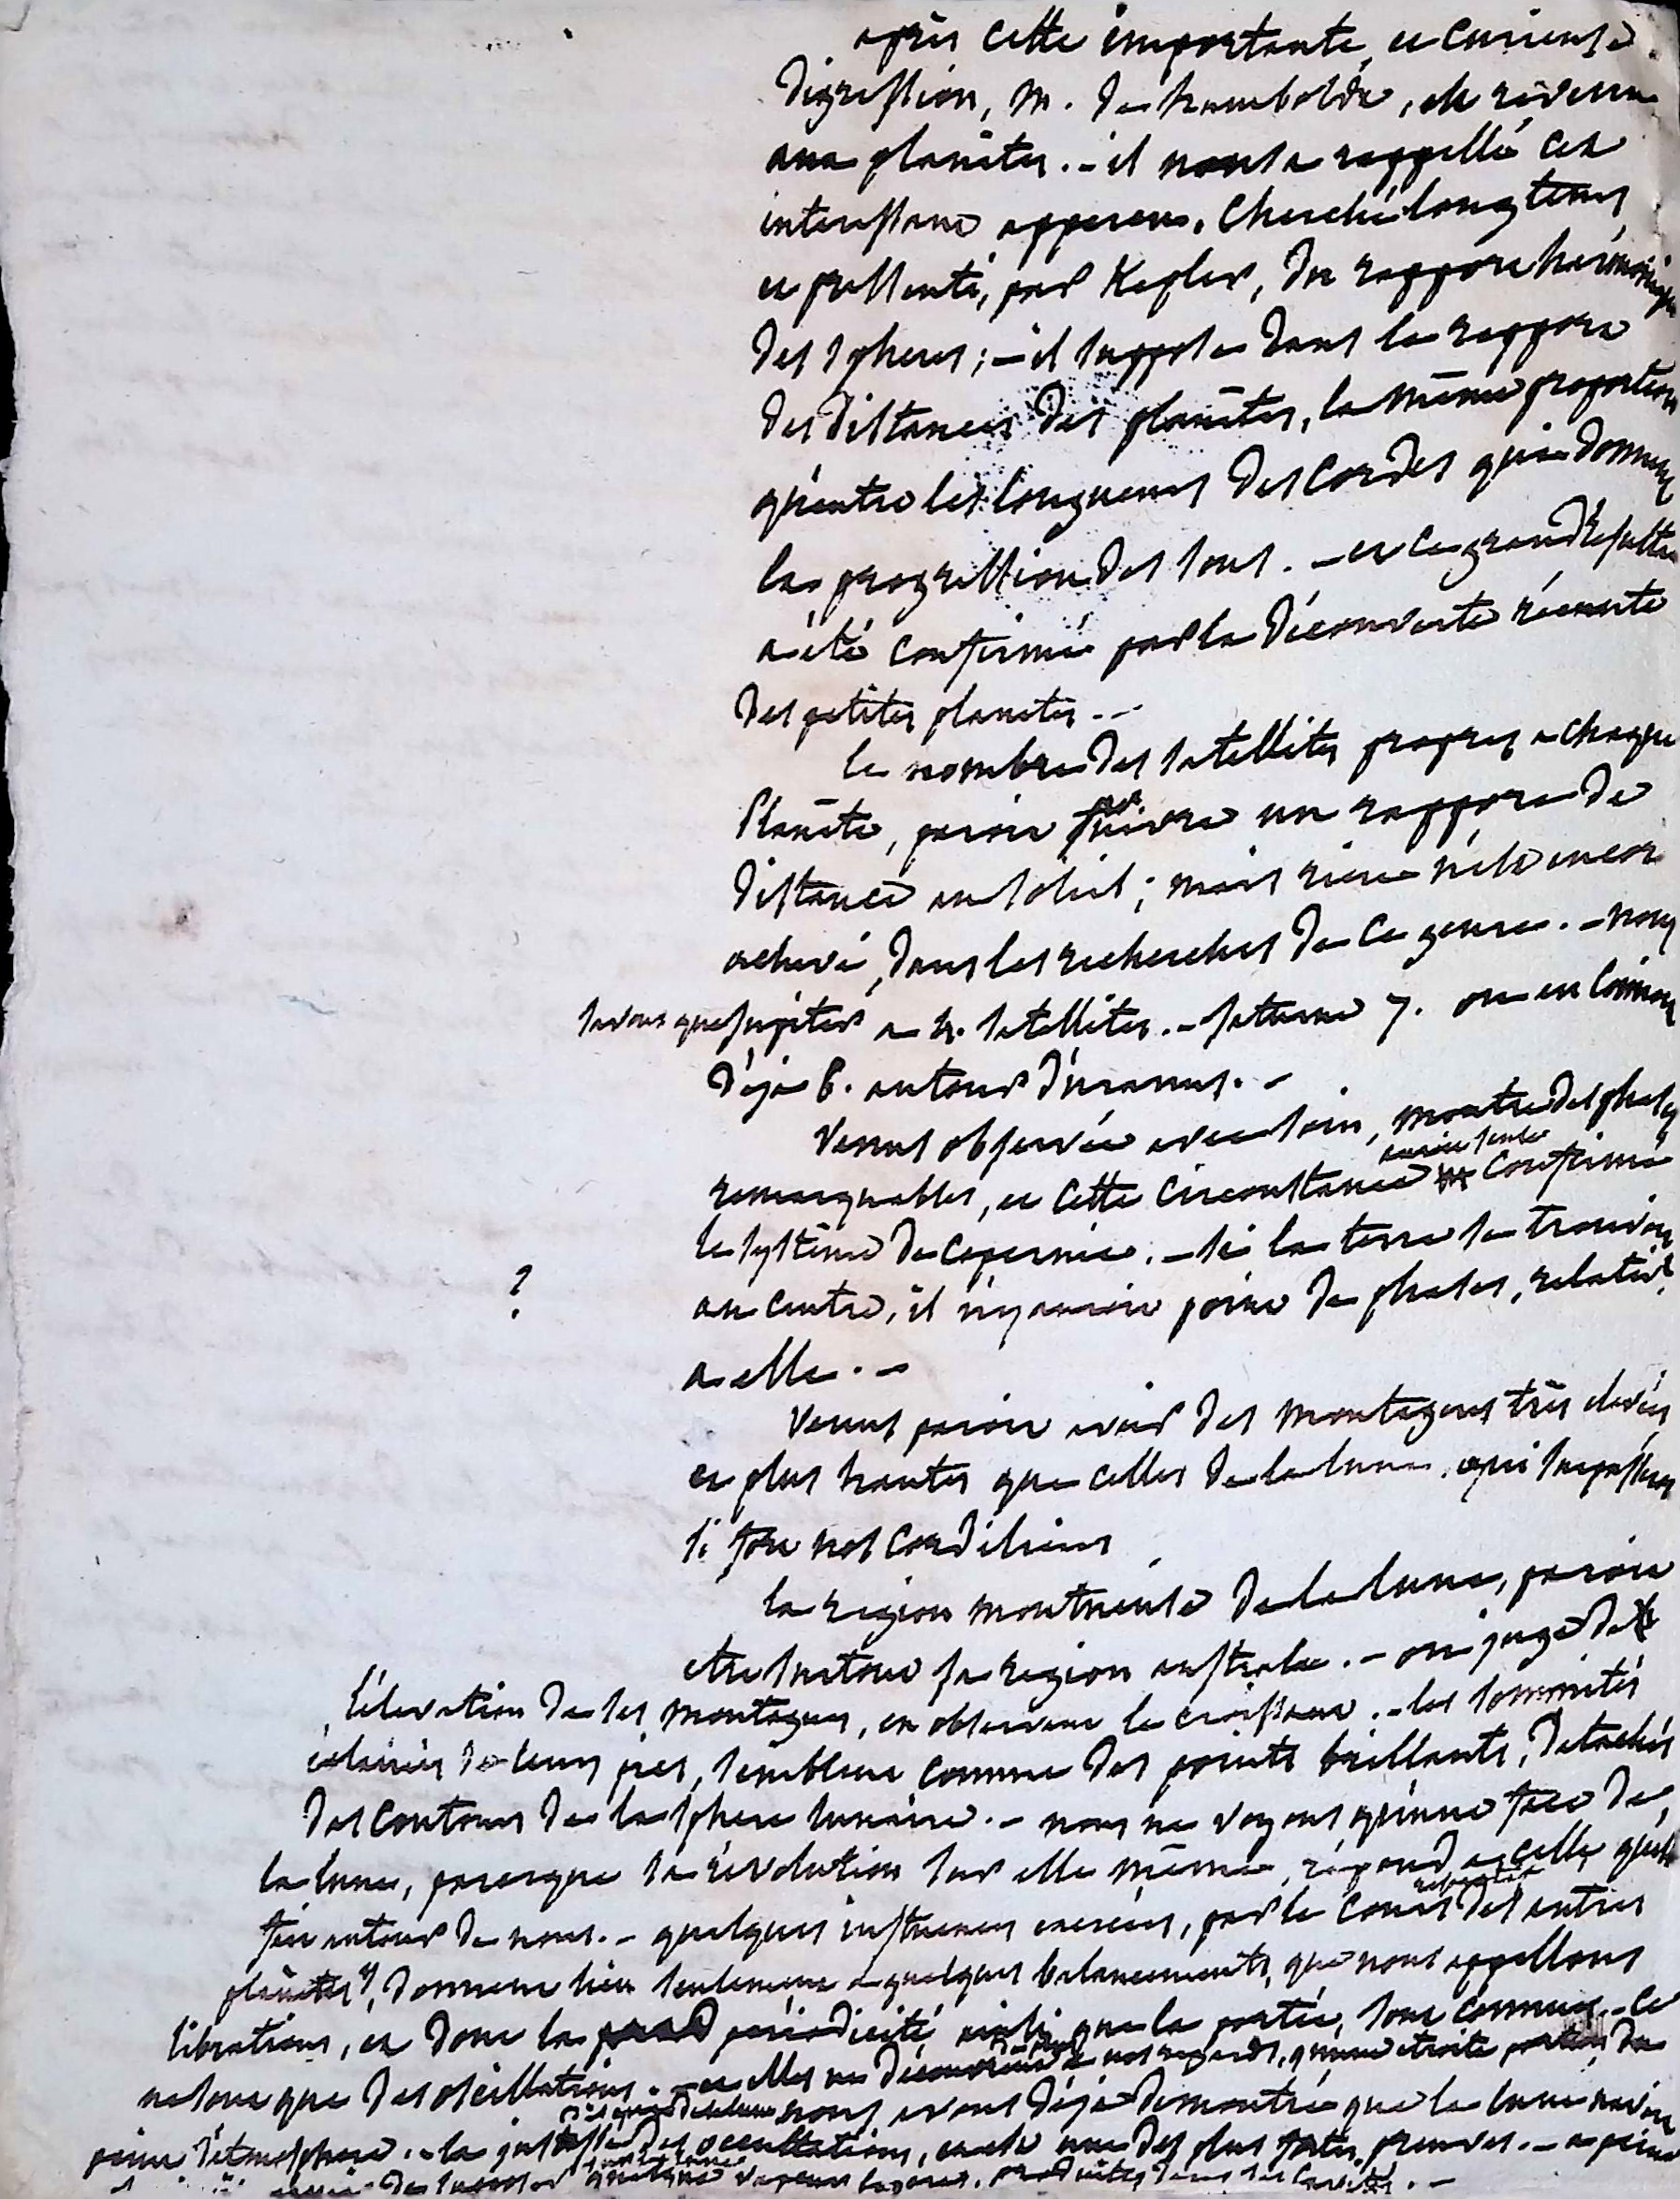 après cette importante, et curieuse
digression, M. de humboldt, est revenu
aux planètes. - il nous a rappellé cet
interessant apperçu, cherché longtems,
et pressenti, par Kepler, du rapport harmonique
des spheres; - il suppose dans le rapport
des distances des planètes, la même proportion
qu'entre les longueurs des cordes qui donnent
la progression des sons. - et ce grand résultat
a été confirmé par la découverte récente
des petites planetes. -
le nombre des satellites propres a chaque
Planète, paroit suivre un rapport de
distance au soleil; mais rien n'est encor
achevé, dans les recherches de ce genre. - nous
savons que jupiter a 4. satellites. - saturne 7. on en connoit
déja 6. autour d'uranus. -
Venus observée avec soin, montre des phases
remarquables, et cette circonstance confirmé
auroit seule
le systême de copernic. - si la terre se trouvoit
? au centre, il n'y auroit point de phases, relatives
a elle. -
Venus paroit avoir des montagnes très elevées
et plus hautes que celles de la lune, qui surpassent
si fort nos cordilieres
la region montueuse de la lune, paroit
etre surtout sa region australe. - on juge de
l'élevation de ses montagnes, en observant le croissant. - les sommités
eclairées de leurs pics, semblent comme des points brillants, détachés
des contours de la sphere lunaire. - nous ne voyons qu'une face de
la lune, parceque sa révolution sur elle même, répond a celle qu'elle
fait autour de nous. - quelques influences exercées, par le cours des autres
planètes, donnent lieu seulement a quelques balancements, que nous appellons
librations, et dont la périodicité ainsi que la portée, sont connues - ce
ne sont que des oscillations. - et elles ne découvrent a nos regards, qu'une etroite portion de
nous avons déja demontré que la lune n'avoit
point d'atmosphere. - la justesse des occultations, en est une des plus fortes preuves. - a peine
quelques vapeurs legeres, produites dans ses cavités. -